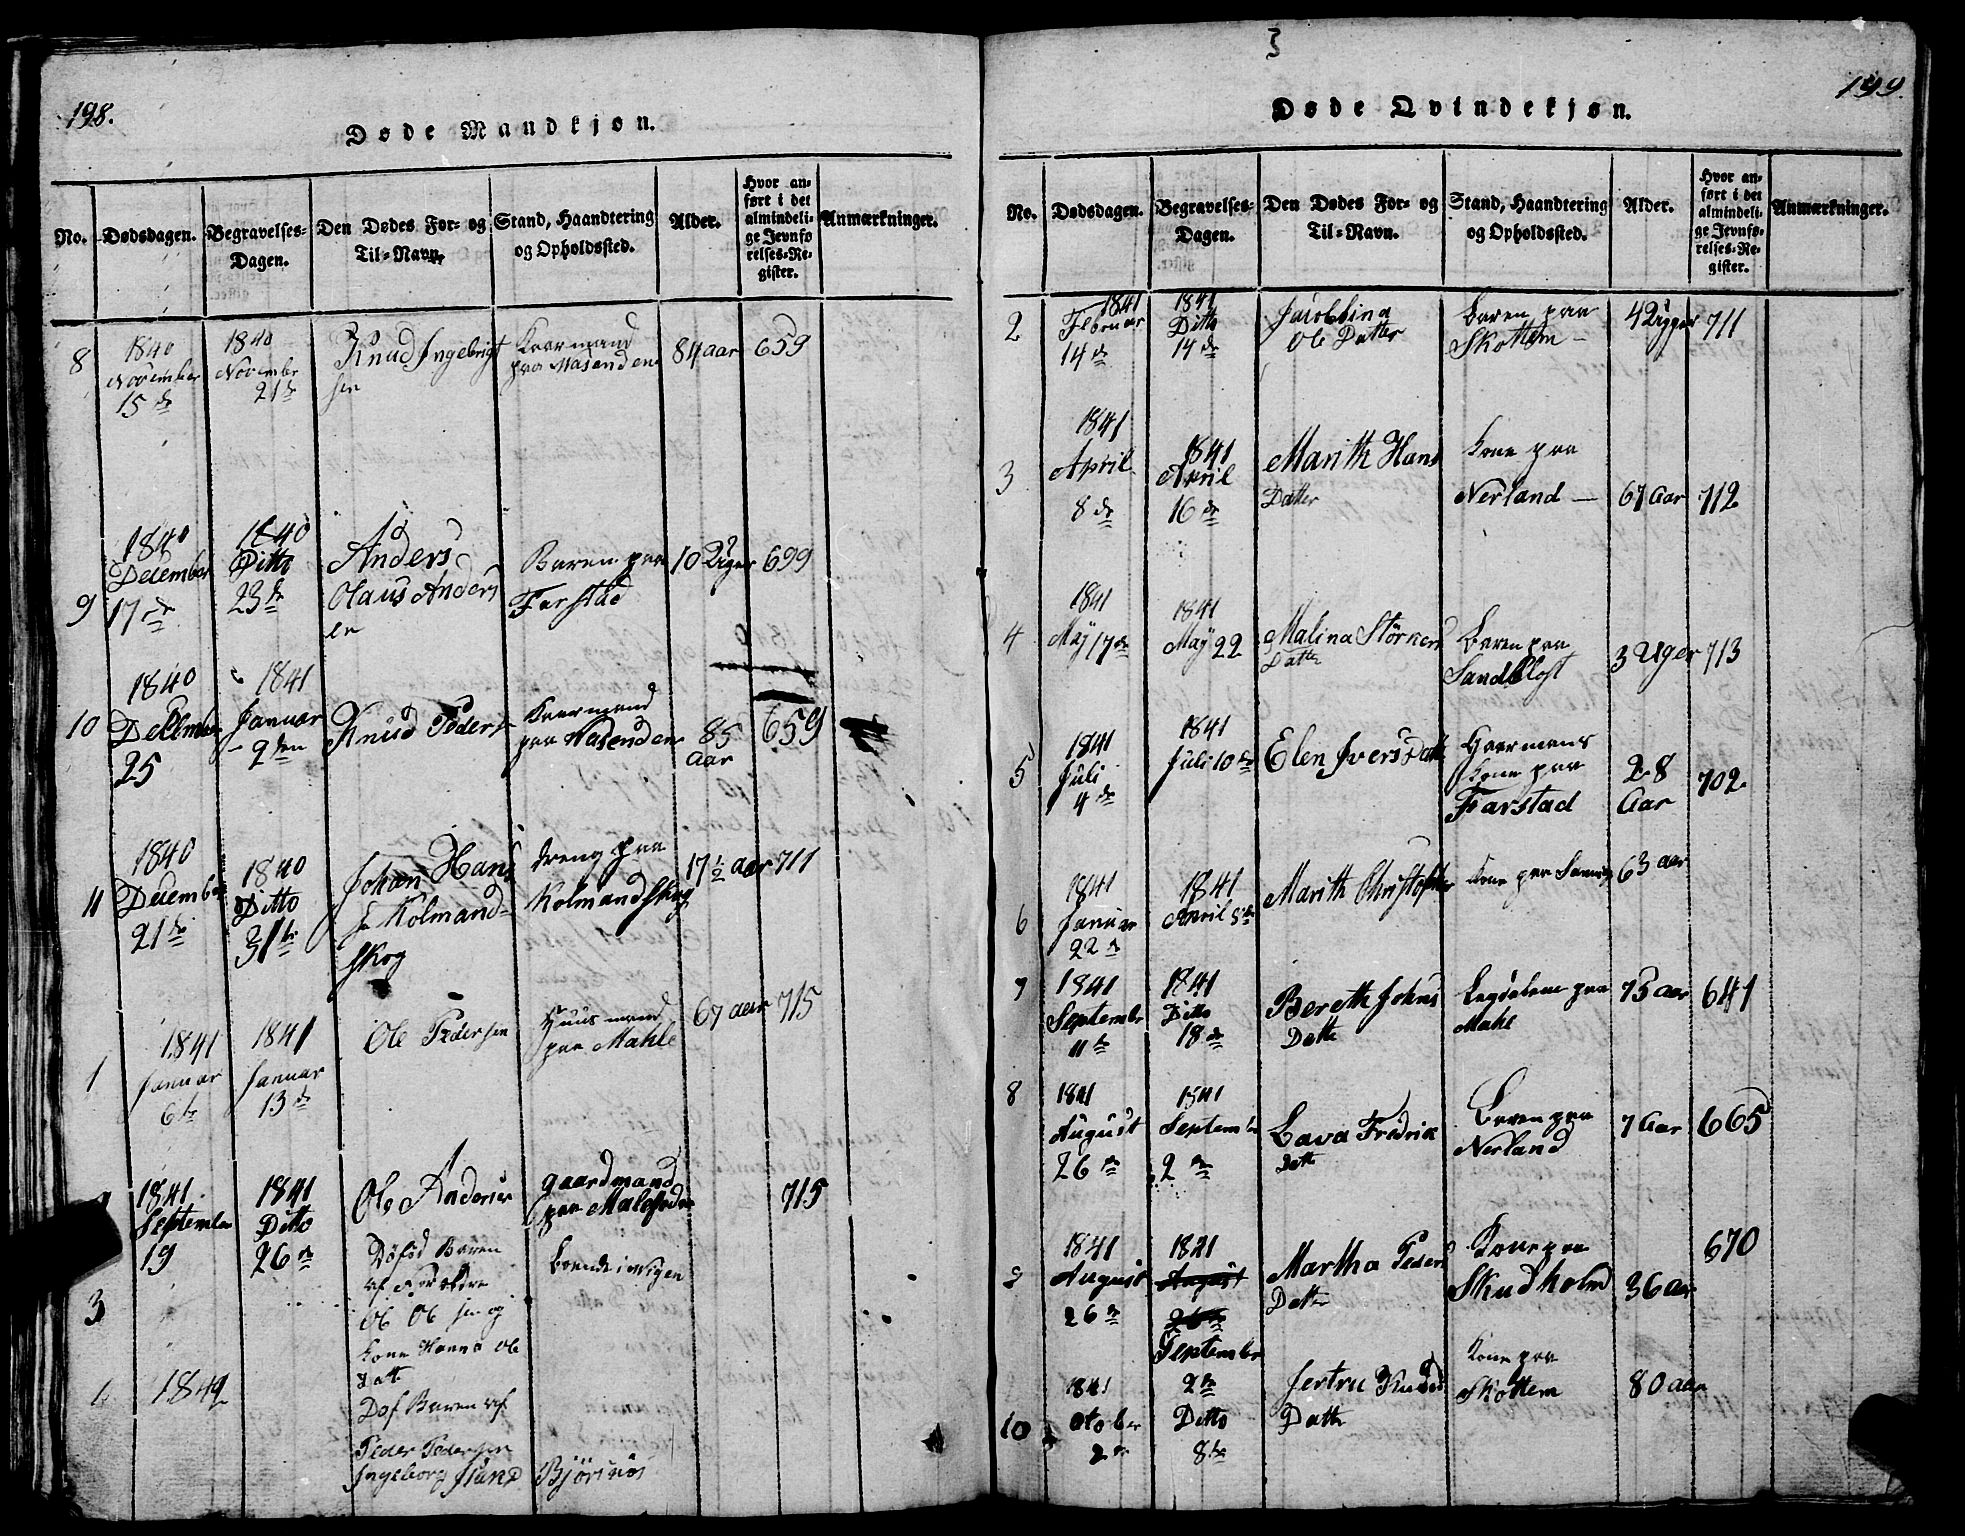 198.
Døde Mandkjøn.
No.
Dødsdagen.
Begravelses-
Dagen.
Den Dødes For- og
Til-Navn.
Stand, Haandtering
og Opholdssted.
Alder.
Hvor an-
ført i det
almindeli-
ge Jevnfø
relses-Re-
gister.
Anmærkninger.
8
1840
November
15 de
1840
November
21 de
Knud Ingebrigt
sen
Kaarmand
paa Hasenden
84 aar
659
9
1840
December
17 de
1840
Ditto
23 de
Anders
Olaus Anders
en
Baren paa
Farstad
10 Uger
699
10
1840
December
25
1841
Januar
2 den
Knud Peders
Kaarmand
paa Hasenden
85
aar
659
11
1840
December
21 de
1840
Ditto
31 te
Johan Hans
s Kolmand-
skog
dreng paa
Kolmandskog
17 1/2 aar
711
1
1841
Januar
6 te
1841
Januar
13 de
Ole Pedersen
Huusmand
paa Mahle
67 aar
715
1841
September
19
1841
Ditto
26 de
Ole Anders
gaardmand
paa
715
3
Døfød Baren
af Forældre
Ole Ole sen og
Kone Hanna Ole
Datt
Boende i Wigen
1842
Døf Baren af
Peder Pedersen
Ingeborg
Bjørsnøs
199.
Døde Qvindekjøn.
No.
Dødsdagen.
Begravelses-
Dagen.
Den Dødes For- og
Til-Navn.
Stand, Haandtering
og Opholdssted.
Alder.
Hvor an-
ført i det
almindeli-
ge Jevnfø-
relses-Re-
gister.
Anmærkninger.
2
1841
Februar
14 de
1841
Ditto
14 de
Jacobbina
Ole Datter
Baren paa
Skottem —
4 Ugger
711
3
1841
April
8 de
1841
April
16 de
Marith Hans
Datter
Kone paa
Nerland —
67 aar
712
4
1841
May 17 de
1841
May 22
Malina Størkers
Datter
Baren paa
Sandblost
3 Uger
713
5
1841
Juli
4 de
1841
Juli 10 de
Elen Ivers Datt
Gaarmans
Kone paa
Farstad
28
Aar
702
6
1841
Januar
22 de
1841
April 8 de
Marith Christofer
Kone paa
63 aar
7
1841
Septembr
11 te
1841
Ditto
18 de
Bereth Johns
Datt
Legdelem paa
Mahl
75 aar
641
8
1841
August
26 de
1841
Septembe
2 de
Lava Fredrik
Datt
Baren paa
Nerland
7 Aar
665
9
1841
August
26 de
1821
August
26 de
Septembr
2 de
Martha Peders
Datt
Kone paa
Skudholm
36 aar
670
10
1841
Otober
2 de
Ditto
8 de
Jertru Knuds
Datt
Kone paa
Skottem
80 aar